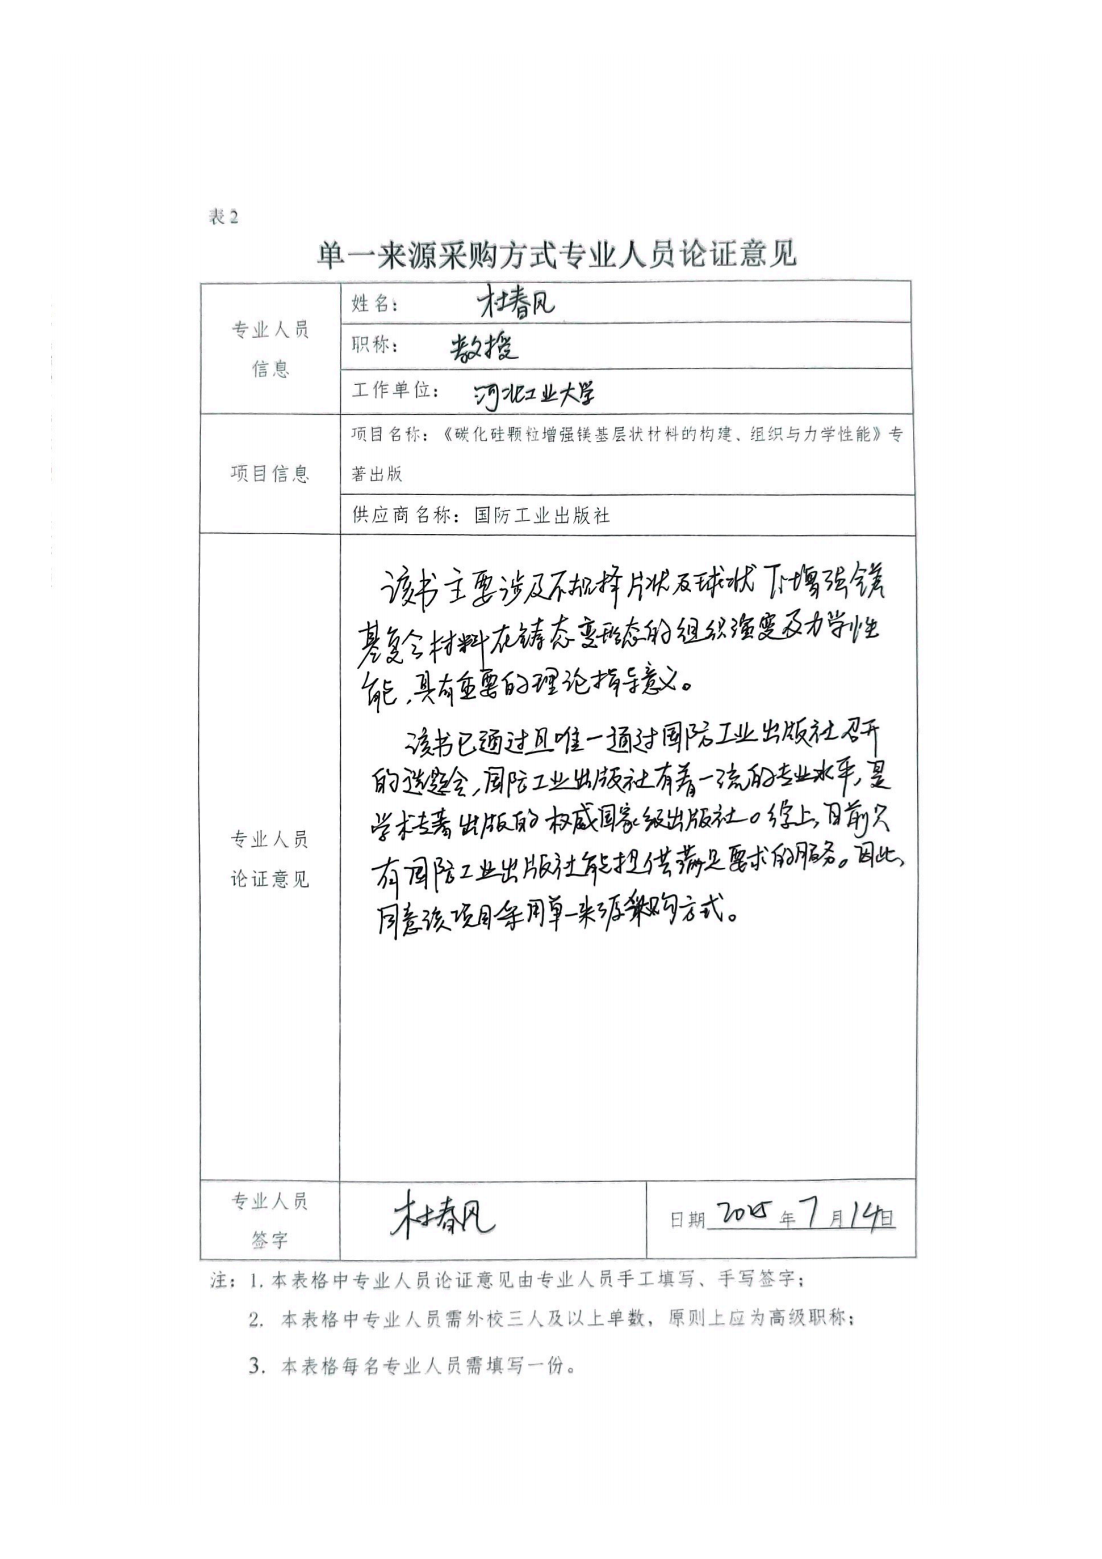 表2
单一来源采购方式专业人员论证意见
专业人员
信息
姓名： 杜春风
职称： 教授
工作单位： 河北工业大学
项目信息
项目名称：《碳化硅颗粒增强镁基层状材料的构建、组织与力学性能》专
著出版
供应商名称：国防工业出版社
专业人员
论证意见
该书主要涉及不规择片状及球状下增强镁
基复合材料在铸态变形态的组织演变及力学性
能，具有重要的理论指导意义。
该书已通过且唯一通过国防工业出版社召开
的选题会，国防工业出版社有着一流的专业水平，是
学术专著出版的权威国家级出版社。综上，目前只
有国防工业出版社能提供满足要求的服务。因此，
同意该项目采用单一来源采购方式。
专业人员
签字
杜春风
日期 2025 年 7 月 14 日
注：1.本表格中专业人员论证意见由专业人员手工填写、手写签字；
2. 本表格中专业人员需外校三人及以上单数，原则上应为高级职称；
3. 本表格每名专业人员需填写一份。